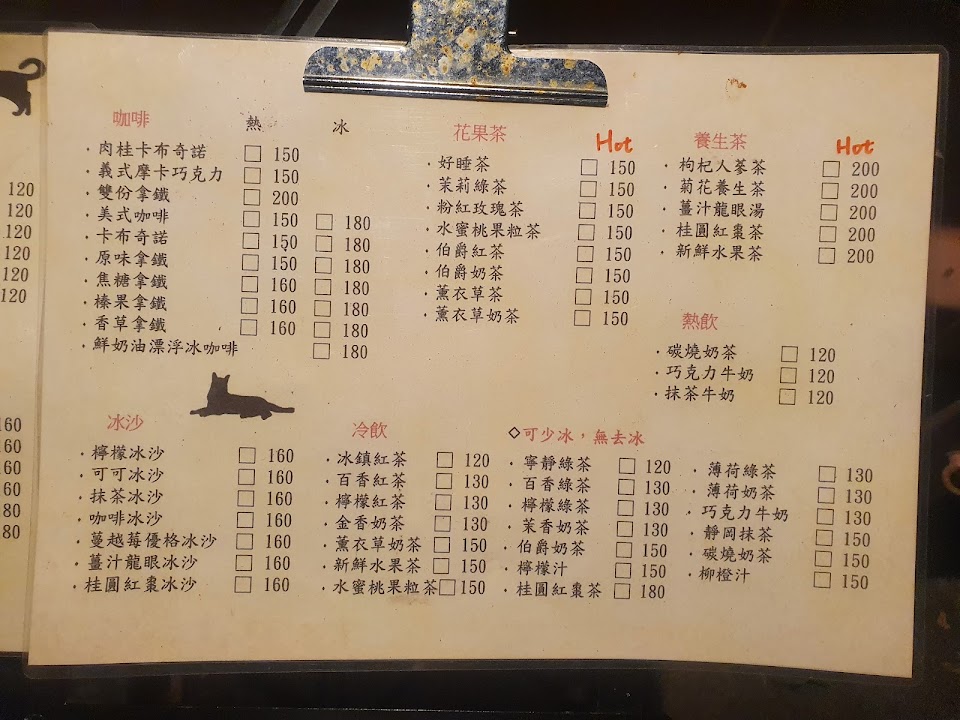 120
120
120
120
120
120
咖啡 熱 冰
・肉桂卡布奇諾 □ 150
・義式摩卡巧克力 □ 150
・雙份拿鐵 □ 200
・美式咖啡 □ 150 □ 180
・卡布奇諾 □ 150 □ 180
・原味拿鐵 □ 150 □ 180
・焦糖拿鐵 □ 160 □ 180
・榛果拿鐵 □ 160 □ 180
・香草拿鐵 □ 160 □ 180
・鮮奶油漂浮冰咖啡 □ 180
花果茶 Hot
・好睡茶 □ 150
・茉莉綠茶 □ 150
・粉紅玫瑰茶 □ 150
・水蜜桃果粒茶 □ 150
・伯爵紅茶 □ 150
・伯爵奶茶 □ 150
・薰衣草茶 □ 150
・薰衣草奶茶 □ 150
養生茶 Hot
・枸杞人蔘茶 □ 200
・菊花養生茶 □ 200
・薑汁龍眼湯 □ 200
・桂圓紅棗茶 □ 200
・新鮮水果茶 □ 200
熱飲
・碳燒奶茶 □ 120
・巧克力牛奶 □ 120
・抹茶牛奶 □ 120
冰沙
・檸檬冰沙 □ 160
・可可冰沙 □ 160
・抹茶冰沙 □ 160
・咖啡冰沙 □ 160
・蔓越莓優格冰沙 □ 160
・薑汁龍眼冰沙 □ 160
・桂圓紅棗冰沙 □ 160
冷飲 ◇可少冰，無去冰
・冰鎮紅茶 □ 120
・百香紅茶 □ 130
・檸檬紅茶 □ 130
・金香奶茶 □ 130
・薰衣草奶茶 □ 150
・新鮮水果茶 □ 150
・水蜜桃果粒茶 □ 150
・寧靜綠茶 □ 120
・百香綠茶 □ 130
・檸檬綠茶 □ 130
・茉香奶茶 □ 130
・伯爵奶茶 □ 150
・檸檬汁 □ 150
・桂圓紅棗茶 □ 180
・薄荷綠茶 □ 130
・薄荷奶茶 □ 130
・巧克力牛奶 □ 130
・靜岡抹茶 □ 150
・碳燒奶茶 □ 150
・柳橙汁 □ 150